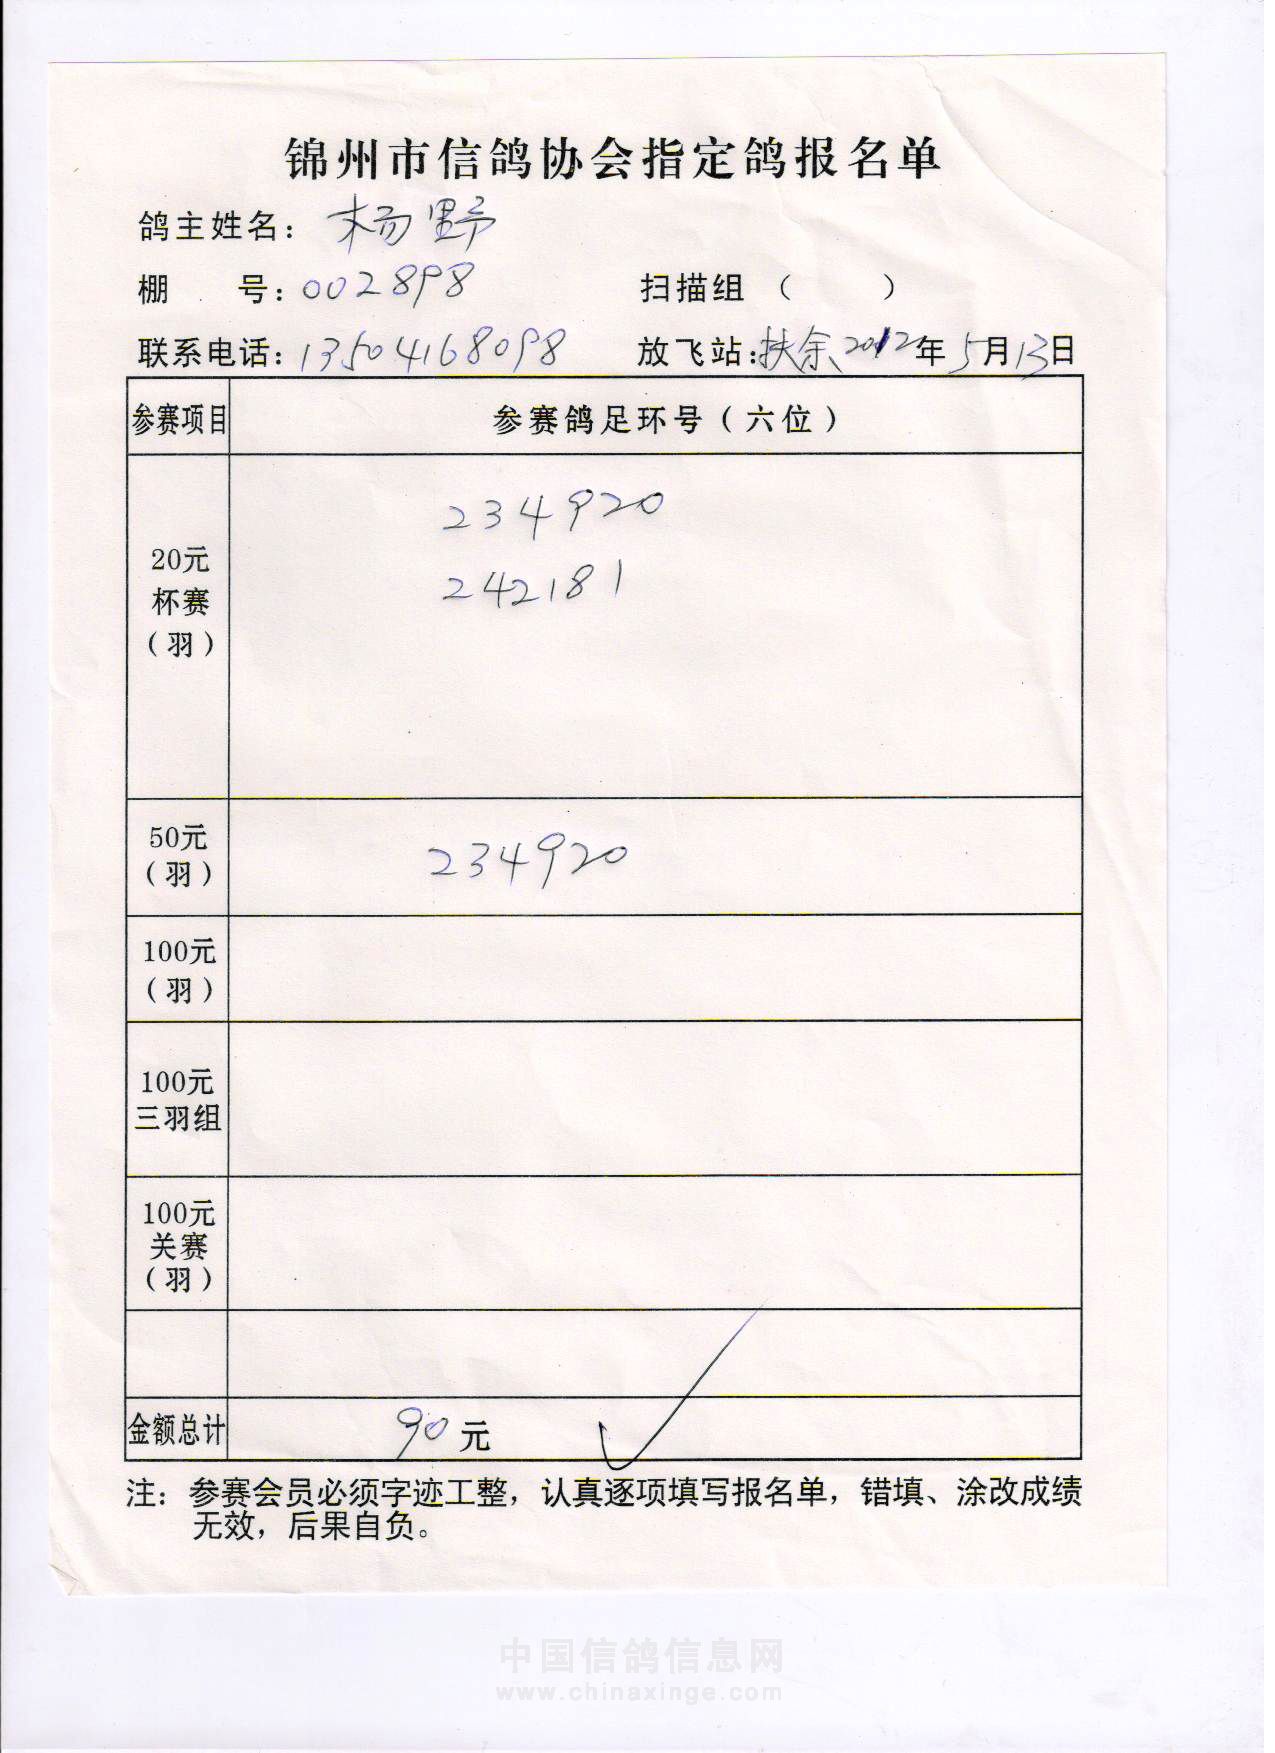 锦州市信鸽协会指定鸽报名单
鸽主姓名: 杨野
棚 号: 002898 扫描组 ( )
联系电话: 13504168098 放飞站: 扶余 2012年5月13日
参赛项目 参赛鸽足环号(六位)
20元
杯赛
(羽)
234920
242181
50元
(羽)
234920
100元
(羽)
100元
三羽组
100元
关赛
(羽)
金额总计 90元
注: 参赛会员必须字迹工整, 认真逐项填写报名单, 错填、涂改成绩
无效, 后果自负。
中国信鸽信息网
www.chinaxinge.com